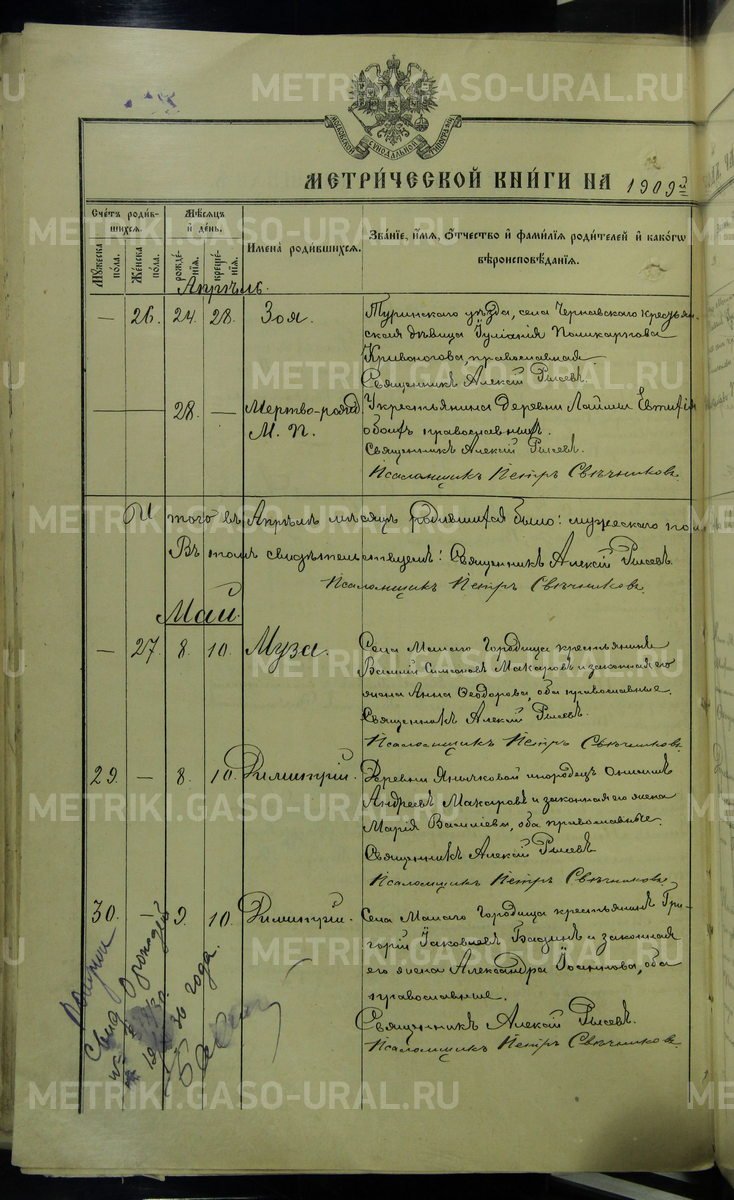 МОСКОВСКОЙ СѴНОДАЛЬНОЙ ТИПОГРАФІИ
МЕТРИ́ЧЕСКОЙ КНИ́ГИ НА 1909й
Счетъ роди́вшихся.
Мѣ́сяцъ и҆ де́нь.
И҆мена̀ роди́вшихся.
Зва́нїе, и҆́мя, ѻ҆́тчество и҆ фами́лїя роди́телей и҆ како́гѡ вѣроисповѣ́данїя.
Мꙋ́жеска по́ла.
Же́нска по́ла.
рожде́нїѧ.
креще́нїѧ.
Апрѣль.
— 26. 24. 28. Зоя. Туринскаго уѣзда, села Чернавскаго крестьян-
ская дѣвица Іуліанія Поликарпова
Кривоногова, православная
Священникъ Алексій Рысевъ.
28. — Мертво-рожд. У крестьянина деревни
М. П. обоихъ православныхъ.
Священникъ Алексій Рысевъ.
Псаломщикъ Петръ Свѣчниковъ
Итого въ Апрѣлѣ мѣсяцѣ родившихся было: мужескаго пол
Въ томъ свидѣтельствуемъ: Священникъ Алексій Рысевъ
Псаломщикъ Петръ Свѣчниковъ.
Май.
— 27. 8. 10. Муза. Села Малаго Городища крестьянинъ
Василій Симоновъ Макаровъ и законная его
жена Анна Ѳеодорова, оба православные.
Священникъ Алексій Рысевъ.
Псаломщикъ Петръ Свѣчниковъ
29. — 8. 10. Димитрій. Деревни Янычковой инородецъ
Андреевъ Макаровъ и законная его жена
Марія Василіева, оба православные.
Священникъ Алексій Рысевъ
Псаломщикъ Петръ Свѣчниковъ
30. 9. 10. Димитрій. Села Малаго Городища крестьянинъ Гри-
горій Іаковлевъ Басунъ и законная
его жена Александра Іоаннова, оба
православные.
Священникъ Алексій Рысевъ.
Псаломщикъ Петръ Свѣчниковъ.
года.
METRIKI.GASO-URAL.RU